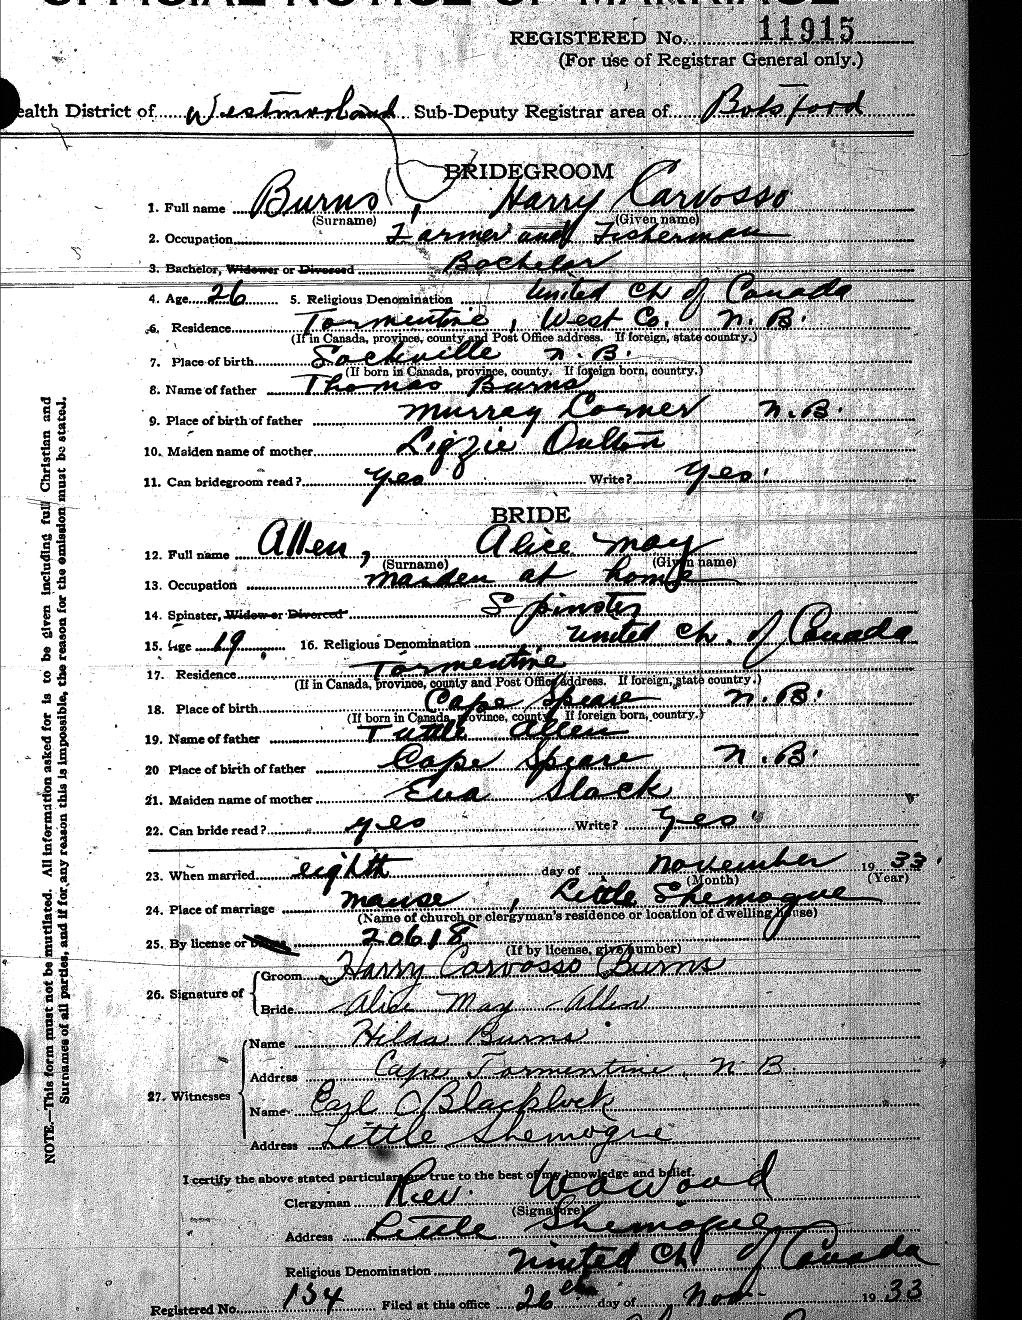 OFFICIAL NOTICE OF MARRIAGE
REGISTERED No. 11915
(For use of Registrar General only.)
ealth District of Westmorland Sub-Deputy Registrar area of Botsford
BRIDEGROOM
1. Full name Burns, Harry Carvosso
(Surname) (Given name)
2. Occupation Farmer and Fisherman
3. Bachelor, Widower or Divorced Bachelor
4. Age 26 5. Religious Denomination United Ch of Canada
6. Residence Tormentine, West Co. N. B.
(If in Canada, province, county and Post Office address. If foreign, state country.)
7. Place of birth Sackville N. B.
(If born in Canada, province, county. If foreign born, country.)
8. Name of father Thomas Burns
9. Place of birth of father Murray Corner N. B.
10. Maiden name of mother Lizzie Oulton
11. Can bridegroom read? yes Write? yes
BRIDE
12. Full name Allen, Alice May
(Surname) (Given name)
13. Occupation maiden at home
14. Spinster, Widow or Divorced Spinster
15. Age 19. 16. Religious Denomination United Ch. of Canada
17. Residence Tormentine
(If in Canada, province, county and Post Office address. If foreign, state country.)
18. Place of birth Cape Spear N. B.
(If born in Canada, province, county. If foreign born, country.)
19. Name of father Tuttle Allen
20 Place of birth of father Cape Spear N. B.
21. Maiden name of mother Eva Slack
22. Can bride read? yes Write? yes
23. When married eighth day of November 1933.
(Month) (Year)
24. Place of marriage manse, Little Shemogue
(Name of church or clergyman's residence or location of dwelling house)
25. By license or 20618
(If by license, give number)
26. Signature of Groom Harry Carvosso Burns
Bride Alice May Allen
27. Witnesses Name Hilda Burns
Address Cape Tormentine, N. B.
Name Earl C Blacklock
Address Little Shemogue
I certify the above stated particulars are true to the best of my knowledge and belief.
Clergyman Rev. Wood
(Signature)
Address Little Shemogue
Religious Denomination United Ch of Canada
Registered No. 134 Filed at this office 26th day of Nov 1933
NOTE.—This form must not be mutilated. All information asked for is to be given including full Christian and
Surnames of all parties, and if for any reason this is impossible, the reason for the omission must be stated.